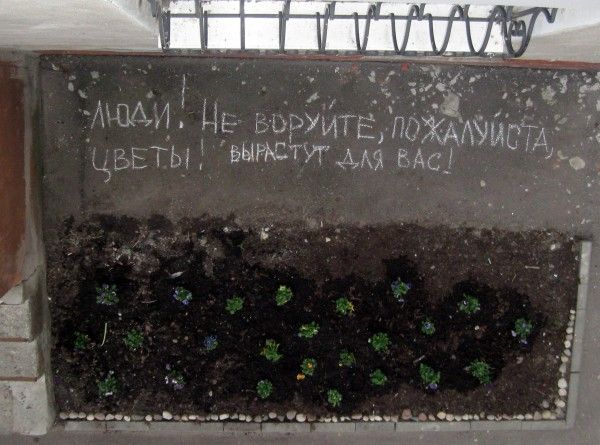 ЛЮДИ! НЕ ВОРУЙТЕ, ПОЖАЛУЙСТА,
ЦВЕТЫ! ВЫРАСТУТ ДЛЯ ВАС!